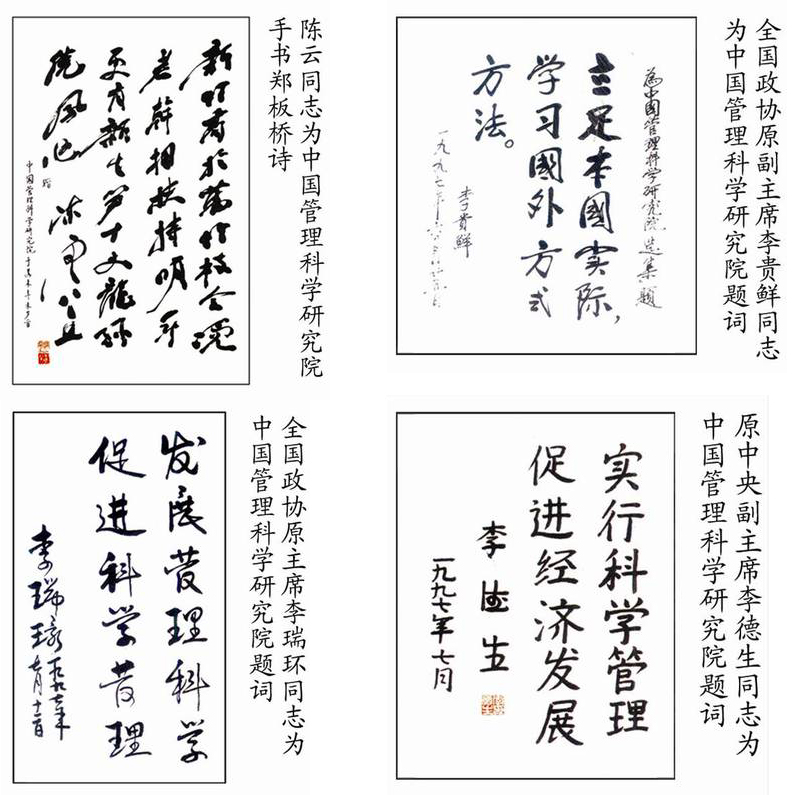 陈云同志为中国管理科学研究院
手书郑板桥诗
新竹高於舊竹枝全憑
老幹相扶持明年
更有新生笋十丈龍孫
绕凤池 陈云
赠
中国管理科学研究院
全国政协原副主席李贵鲜同志
为中国管理科学研究院题词
為中國管理科学研究院选集题
立足本國实际,
学习國外方式
方法。
李貴鲜
一九九七年
全国政协原主席李瑞环同志为
中国管理科学研究院题词
发展管理科学
促进科学管理
李瑞环
一九九七年
原中央副主席李德生同志为
中国管理科学研究院题词
实行科学管理
促进经济发展
李德生
一九九七年七月